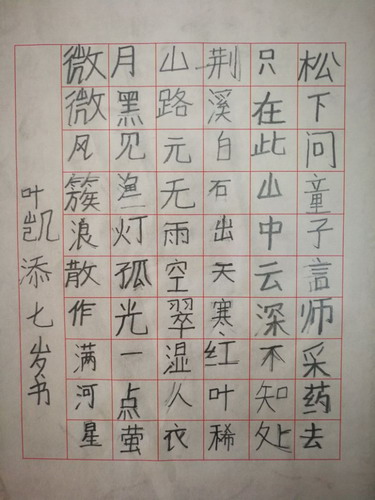 松下问童子言师采药去
只在此山中云深不知处
荆溪白石出天寒红叶稀
山路元无雨空翠湿人衣
月黑见渔灯孤光一点萤
微微风簇浪散作满河星
叶凯添七岁书